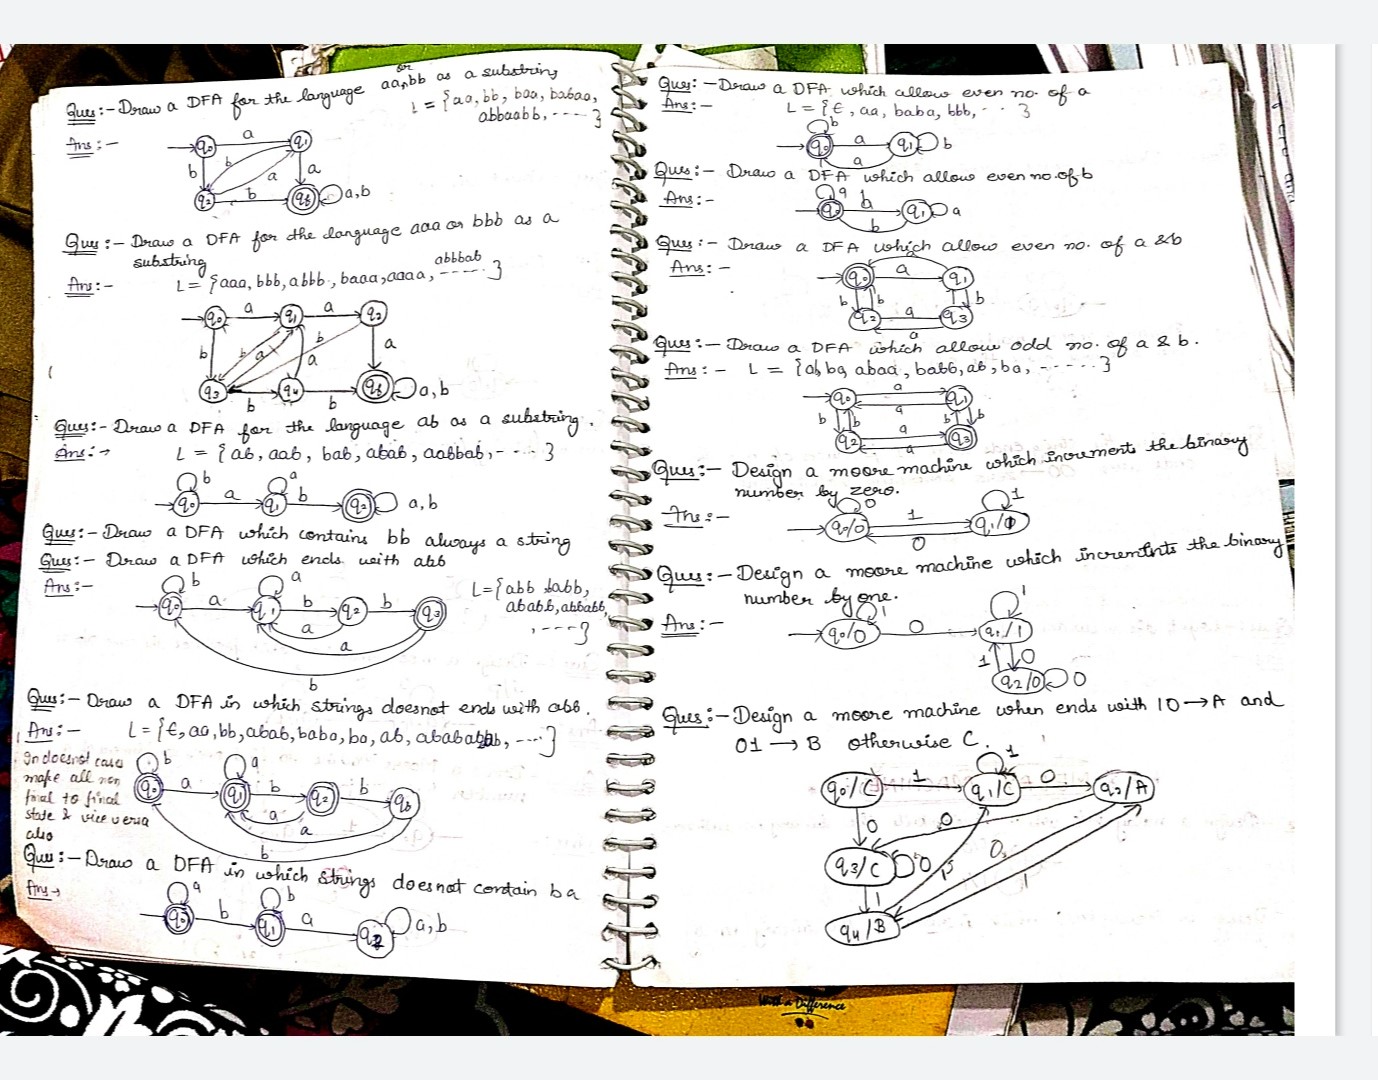 Ques:- Draw a DFA for the language aa or bb as a substring
L = {aa, bb, baa, babaa,
abbaabb, ---- }
Ans:-
q0 a q1
b b a a
q2 b qf a,b
Ques:- Draw a DFA for the language aaa or bbb as a
substring
Ans:- L = {aaa, bbb, abbb, baaa, aaaa, abbbab ----- }
q0 a q1 a q2
b b a b a a
q3 b q4 b qf a,b
Ques:- Draw a DFA for the language ab as a substring.
Ans:→ L = {ab, aab, bab, abab, aabbab, - --- }
b a
q0 a q1 b q2 a,b
Ques:- Draw a DFA which contains bb always a string
Ques:- Draw a DFA which ends with abb
Ans:- L={abb, babb,
ababb, abbabb,
, ---- }
b a
q0 a q1 b q2 b q3
a
a
b
Ques:- Draw a DFA in which strings doesnot ends with abb.
Ans:- L = {Є, aa, bb, abab, baba, ba, ab, ab, ---- }
In doesnot case
make all non
final to final
state & vice versa
also
b a
q0 a q1 b q2 b
a
a
b
Ques:- Draw a DFA in which strings doesnot contain ba
Ans→
a b
q0 b q1 a q2 a,b
Ques:- Draw a DFA which allow even no. of a
Ans:- L = {Є, aa, baba, bbb, - - }
b
q0 a q1 b
a
Ques:- Draw a DFA which allow even no. of b
Ans:-
a
q0 b q1 a
b
Ques:- Draw a DFA which allow even no. of a & b
Ans:-
a
q0 a q1
b b b
q2 a q3
a
Ques:- Draw a DFA which allow odd no. of a & b.
Ans:- L = {ab, ba, abaa, babb, ab, ba, ----- }
q0 a q1
a
b b b
q2 a q3
a
Ques:- Design a moore machine which increments the binary
number by zero.
Ans:-
0 1
q0/0 1 q1/1
0
Ques:- Design a moore machine which increments the binary
number by one.
Ans:-
1 1
q0/0 0 q1/1
1 0
q2/0 0
Ques:- Design a moore machine when ends with 10→A and
01→B otherwise C.
1
q0/C 1 q1/C 0 q2/A
0 0
q3/C 0 1 0
1 1
q4/B
With a Difference